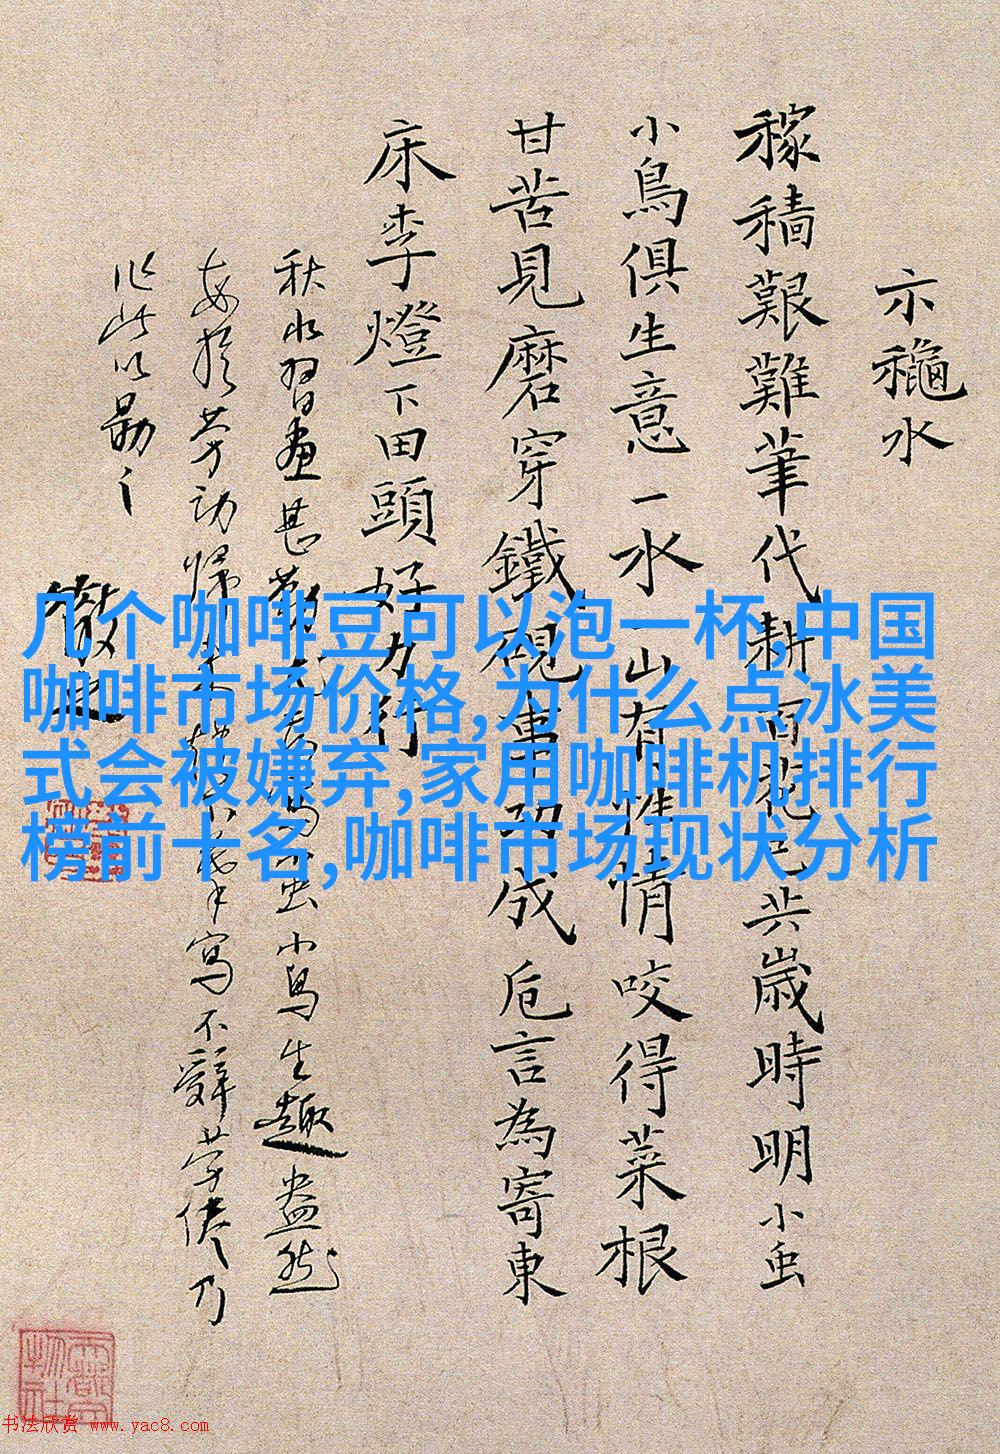 示龝水
稼穡艱難筆代耕
共歲時明小虫
小鳥俱生意一水一山有性情咬得菜根
甘苦見磨穿鐵硯事功成卮言為寄東
床李燈下田頭好力行
秋水習畫甚勤
虫小鳥生趣盎然
寫不辭勞倦乃
作此以勗之
几个咖啡豆可以泡一杯,中国
咖啡市场价格,为什么点冰美
式会被嫌弃,家用咖啡机排行
榜前十名,咖啡市场现状分析
书法欣赏 www.yac8.com